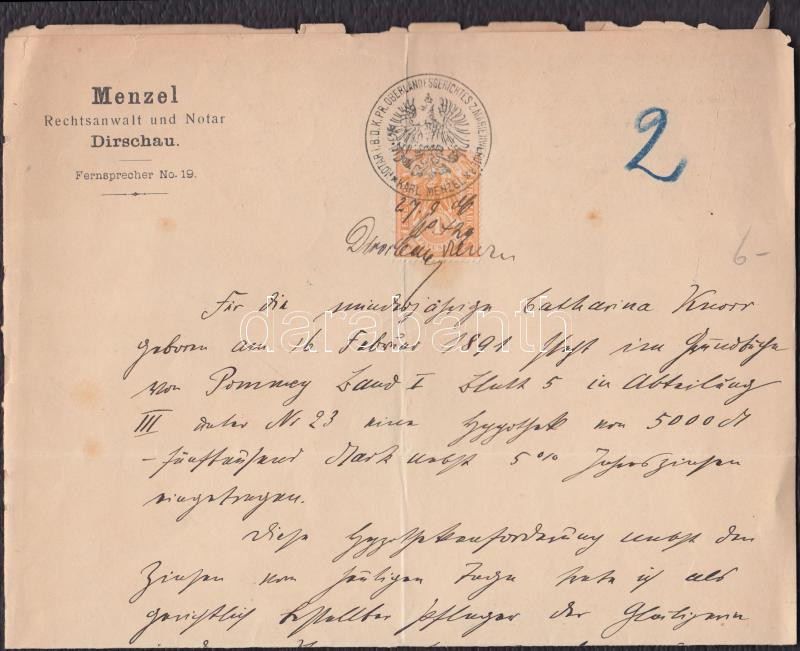 Menzel
Rechtsanwalt und Notar
Dirschau.
Fernsprecher No. 19.
NOTAR I. B. D. K. PR. OBERLANDESGERICHTES Z. MARIENWERDER
KARL MENZEL
2
27. 9.
6-
Für die minderjährige Catharina Knorr
geboren am 16 Februar 1891 steht im Grundbuche
von Pommey Band I Blatt 5 in Abteilung
III unter Nr 23 eine Hypothek von 5000 M
- fünftausend Mark nebst 5 % Jahreszinsen
eingetragen.
Diese Hypothekenforderung nebst den
Zinsen vom heutigen Tage trete ich als
gerichtlich bestellter Pfleger der Gläubigerin
darabanth